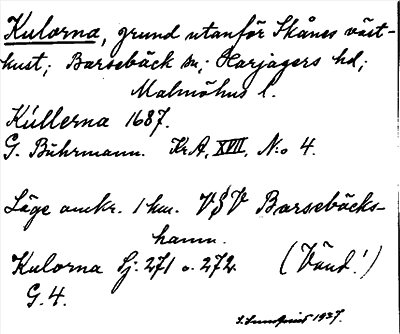 Kulorna, grund utanför Skånes väst-
kust; Barsebäck sn; Harjagers hd;
Malmöhus l.
Kúllerna 1687.
G. Buhrmann. Kr.A, XVII, N:o 4.
Läge omkr. 1 km. VSV Barsebäcks-
hamn.
Kulorna Sj: 271 o. 272. (Vänd!)
G. 4.
S. Lundqvist 1927.